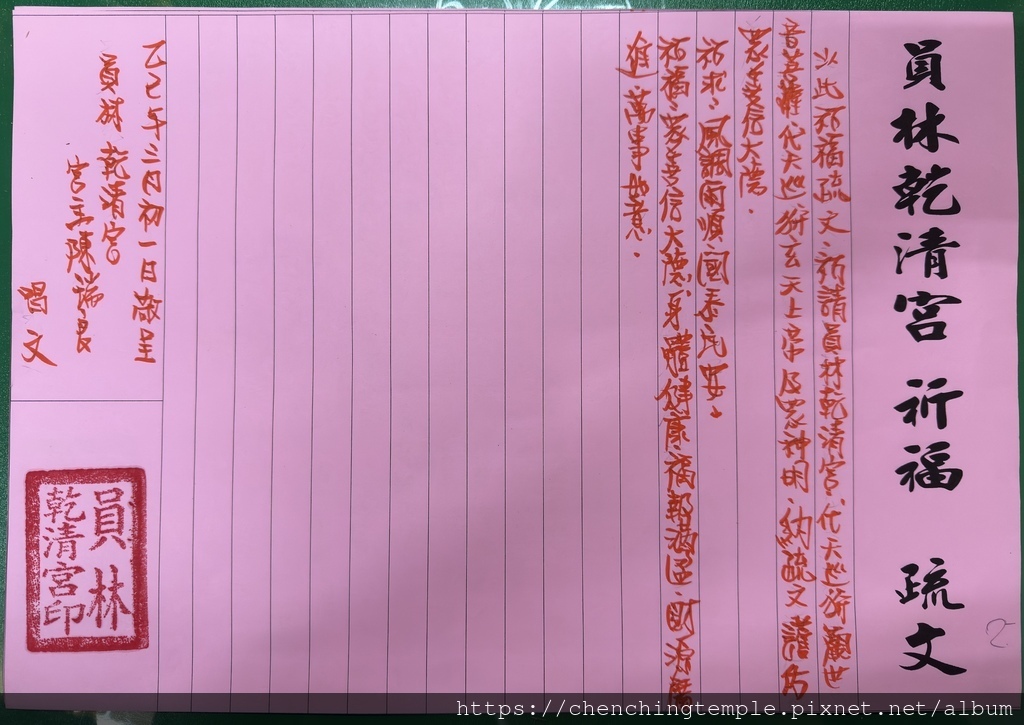 員林乾清宮 祈福 疏文
以此祈福疏文、祈請員林乾清宮、代天巡狩觀世
音菩薩、代天巡狩玄天上帝及眾神明、納疏文護佑
眾善信大德.
祈求、風調雨順、國泰民安、
祈福、眾善信大德、身體健康、福報滿溢、財源廣
進、萬事如意.
乙巳年三月初一日敬呈
員林 乾清宮
宮主陳瑞良
唱文
員林
乾清宮印
2
https://chenchingtemple.pixnet.net/album